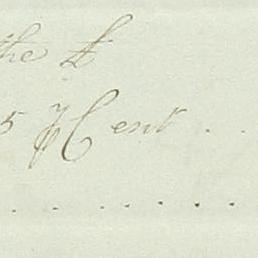 the £
5 ⅌ Cent . .
. . . . . . . .